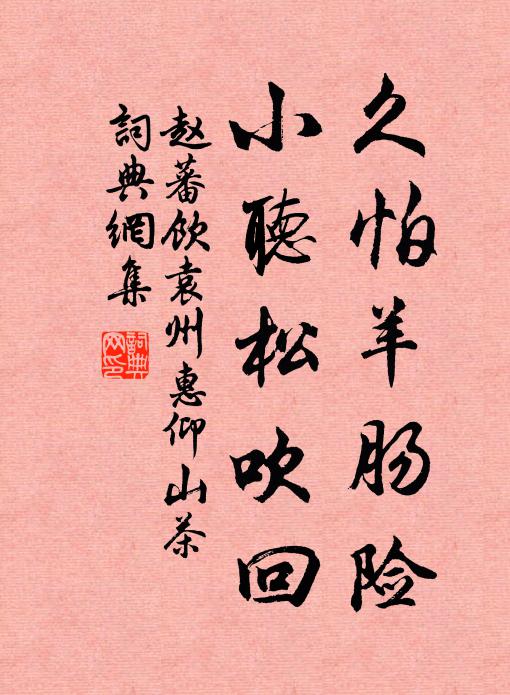 久怕羊肠险
小聽松吹回
赵蕃飲袁州惠仰山茶
詞典網集
詞典網印